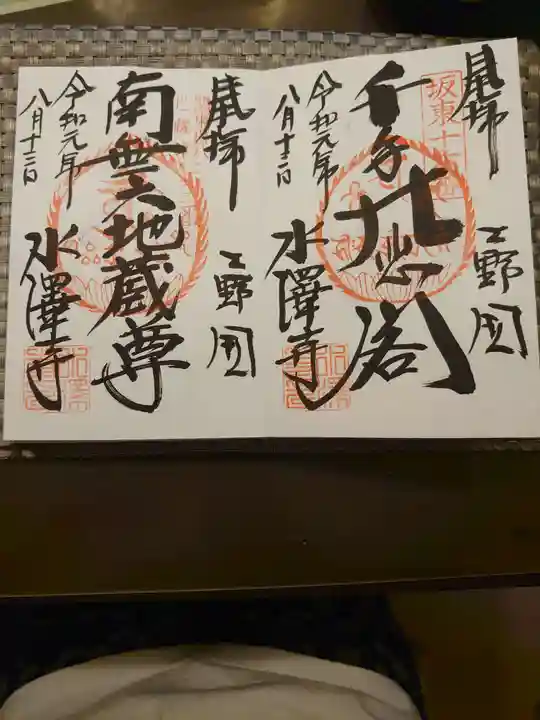 奉拝
坂東十六番
上野国
千手大悲閣
令和元年
八月十三日
水澤寺
奉拝
上野国
南無六地蔵尊
令和元年
八月十三日
水澤寺